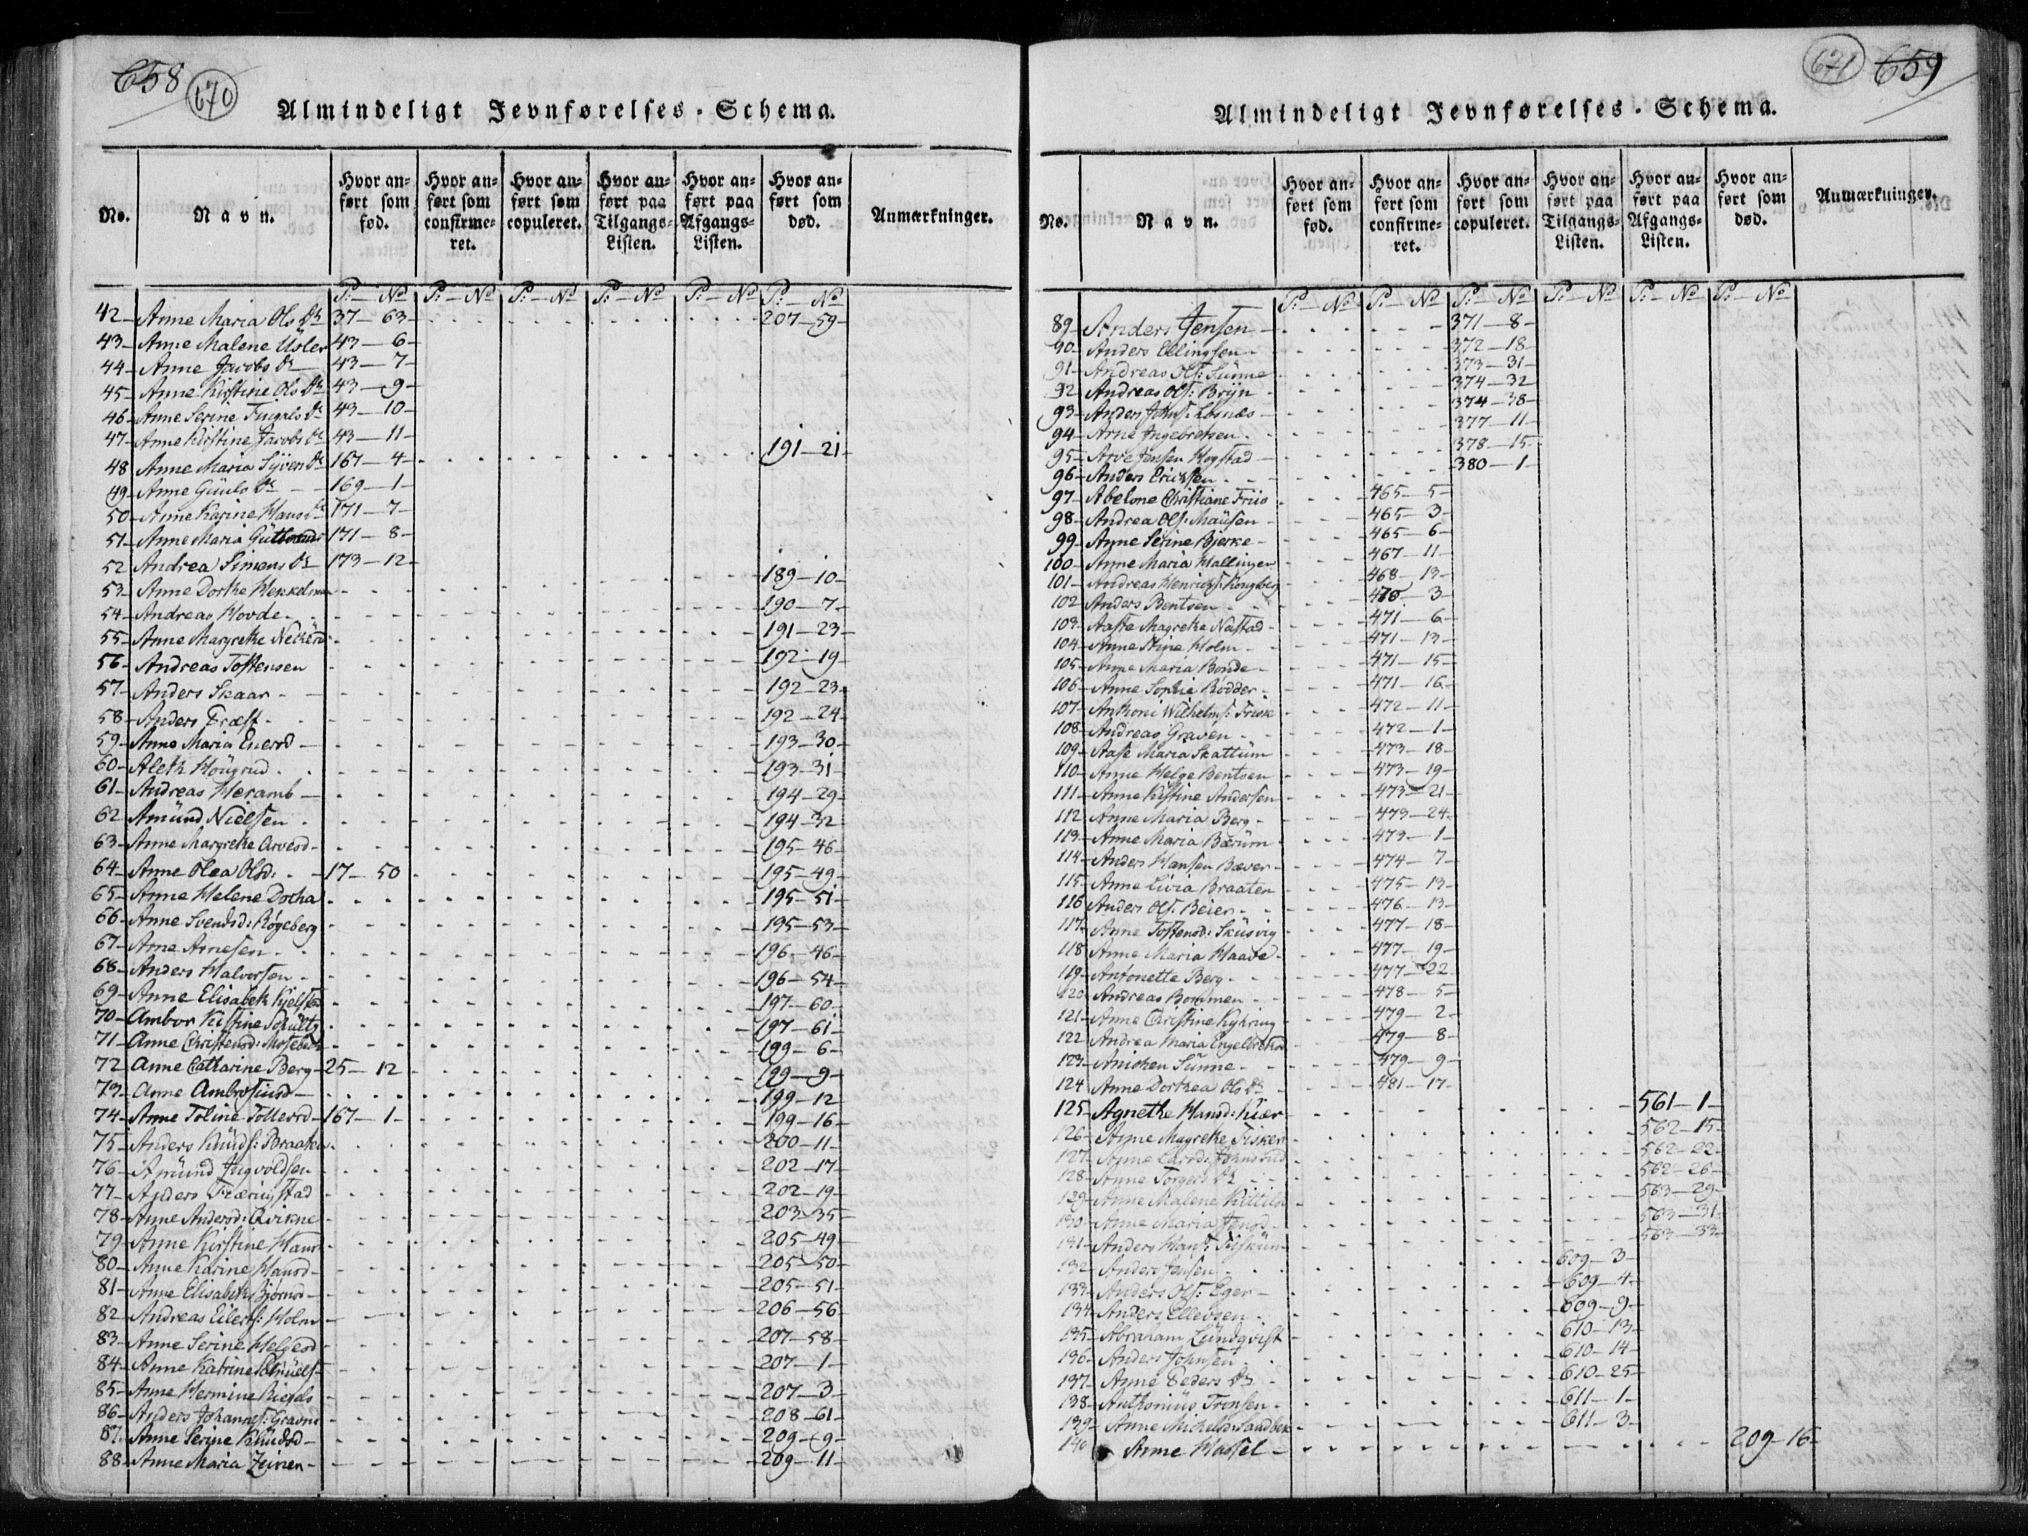 658 670
Almindeligt Jevnførelses-Schema.
No. Navn. Hvor anført som fød. Hvor anført som confirmeret. Hvor anført som copuleret. Hvor anført paa Tilgangs-Listen. Hvor anført paa Afgangs-Listen. Hvor anført som død. Anmærkninger.
P. No P. No P. No P. No P. No P. No
42 Anne Maria Ols Dr 37 63 207 59
43 Anne Malene Üsler 43 6
44 Anne Jacobs Dr 43 7
45 Anne Kirstine Ols Dr 43 9
46 Anne Serine Dr 43 10
47 Anne Kirstine Jacobs Dr 43 11
48 Anne Maria Syven Dr 167 4 191 21
49 Anne Güuls Dr 169 1
50 Anne Karine Hans Dr 171 7
51 Anne Maria 171 8
52 Andrea Simens Dr 173 12
53 Anne Dorthe 189 10
54 Andreas Hovde 190 7
55 Anne Margrethe 191 23
56 Andreas Tostensen 192 19
57 Anders Skaar 192 23
58 Anders 192 24
59 Anne Maria Enersd 193 30
60 Aleth Hougrud 193 31
61 Andreas Heramb 194 29
62 Amünd Nielsen 194 32
63 Anne Margrethe Arvesd 195 46
64 Anne Olea Olsd: 17 50 195 49
65 Anne Helene Dorthea 195 51
66 Anne Svendsd: Røgeberg 195 53
67 Arne Arnesen 196 46
68 Anders Halvorsen 196 54
69 Anne Elisabeth 197 60
70 Ambor Kistine Schultz 197 61
71 Anne Christensd: 199 6
72 Anne Catharine Berg 25 12 199 9
73 Anne Ambrosiusd 199 12
74 Anne Toline Tollersd 167 1 199 16
75 Anders Knuds: Braathen 200 11
76 Amünd Ingvoldsen 202 17
77 Anders Frøringstad 202 19
78 Anne Andersd: Qvikne 203 35
79 Anne Kirstine Hansd 205 49
80 Anne Karine Hansd 205 50
81 Anne Elisabeth Bjørnsd 205 51
82 Andreas Eilerts: Holm 206 56
83 Anne Serine Helgesd 207 58
84 Anne Katrine 207 1
85 Anne Hermine Riegels 207 3
86 Anders Johannes: Gravns 208 61
87 Anne Serine Knudsd 209 9
88 Anne Maria Zeiner 209 11
671 659
Almindeligt Jevnførelses-Schema.
No. Navn. Hvor anført som fød. Hvor anført som confirmeret. Hvor anført som copuleret. Hvor anført paa Tilgangs-Listen. Hvor anført paa Afgangs-Listen. Hvor anført som død. Anmærkninger.
P. No P. No P. No P. No P. No P. No
89 Anders Jensen 371 8
90 Anders Ellingsen 372 18
91 Andreas Ols: Sünne 373 31
92 Andreas Ols: Bryn 374 32
93 Anders Johns: 374 38
94 Arne Ingebretsen 377 11
95 Arve Jensen Hogstad 378 15
96 Anders Ericksen 380 1
97 Abelone Christiane Friis 465 5
98 Andrea Ols: Maüsen 465 3
99 Anne Serine Bjerke 465 6
100 Anne Maria Hallingen 467 11
101 Andreas Henrichs: Kongberg 468 13
102 Anders Bentsen 470 3
103 Aaste Magrethe Nastad 471 6
104 Anne Stine Holm 471 13
105 Anne Maria Bonde 471 15
106 Anne Sophie Bødder 471 16
107 Anthoni Wilhelms: Frisk 472 11
108 Andreas Graven 472 1
109 Aase Maria Skattüm 473 18
110 Anne Helge Bentsen 473 19
111 Anne Kistine Andersen 473 21
112 Anne Maria Berg 473 24
113 Anne Maria Bærüm 473 1
114 Anders Hansen Bæver 474 7
115 Anne Livia Braaten 475 13
116 Anders Ols: Beier 476 13
117 Anne Tostensd: Sküsvig 477 18
118 Anne Maria Haave 477 19
119 Antonette Berg 477 22
120 Andreas Bommen 478 5
121 Anne Christine Kyhring 479 2
122 Andrea Maria Engelbrektsd 479 8
123 Anichen Sünne 479 9
124 Anne Dorthea Ols Dr 481 17
125 Agnethe Hansd: Kiær 561 1
126 Anne Magrethe Fisker 562 15
127 Anne Larsd: Johnsrud 562 22
128 Anne Torgers Dr 562 26
129 Anne Malene Kittilsd 563 29
130 Anne Maria Jensd 563 31
131 Anders Hans: Fisküm 563 33
132 Anders Jensen 609 3
133 Anders Ols: Eger 609 4
134 Anders Ellevsen 609 9
135 Abraham Lündqvist 610 13
136 Anders Johnsen 610 14
137 Anne Peders Dr 610 25
138 Anthonius Tronsen 611 1
139 Anne Michelsd: Sandbek 611 3
140 Anne Hassel 209 16